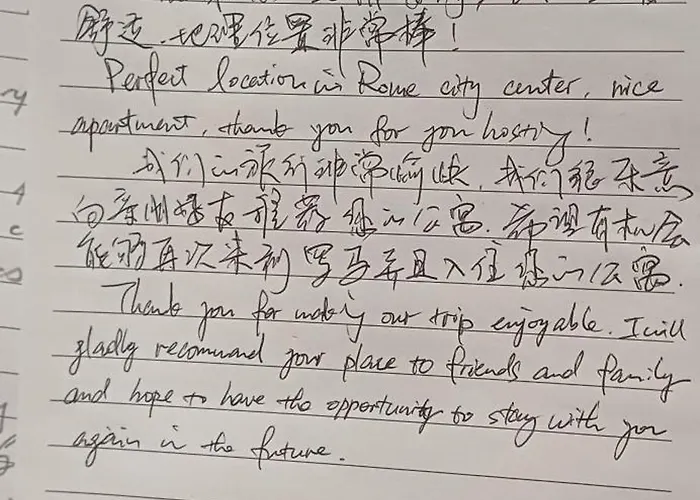 舒适,地理位置非常棒!
Perfect location in Rome city center, nice
apartment, thank you for you hosting!
我们的旅行非常愉快,我们很乐意
向亲朋好友推荐您的公寓.希望有机会
能够再次来到罗马并且入住您的公寓.
Thank you for making our trip enjoyable. I will
gladly recommend your place to friends and family
and hope to have the opportunity to stay with you
again in the future.